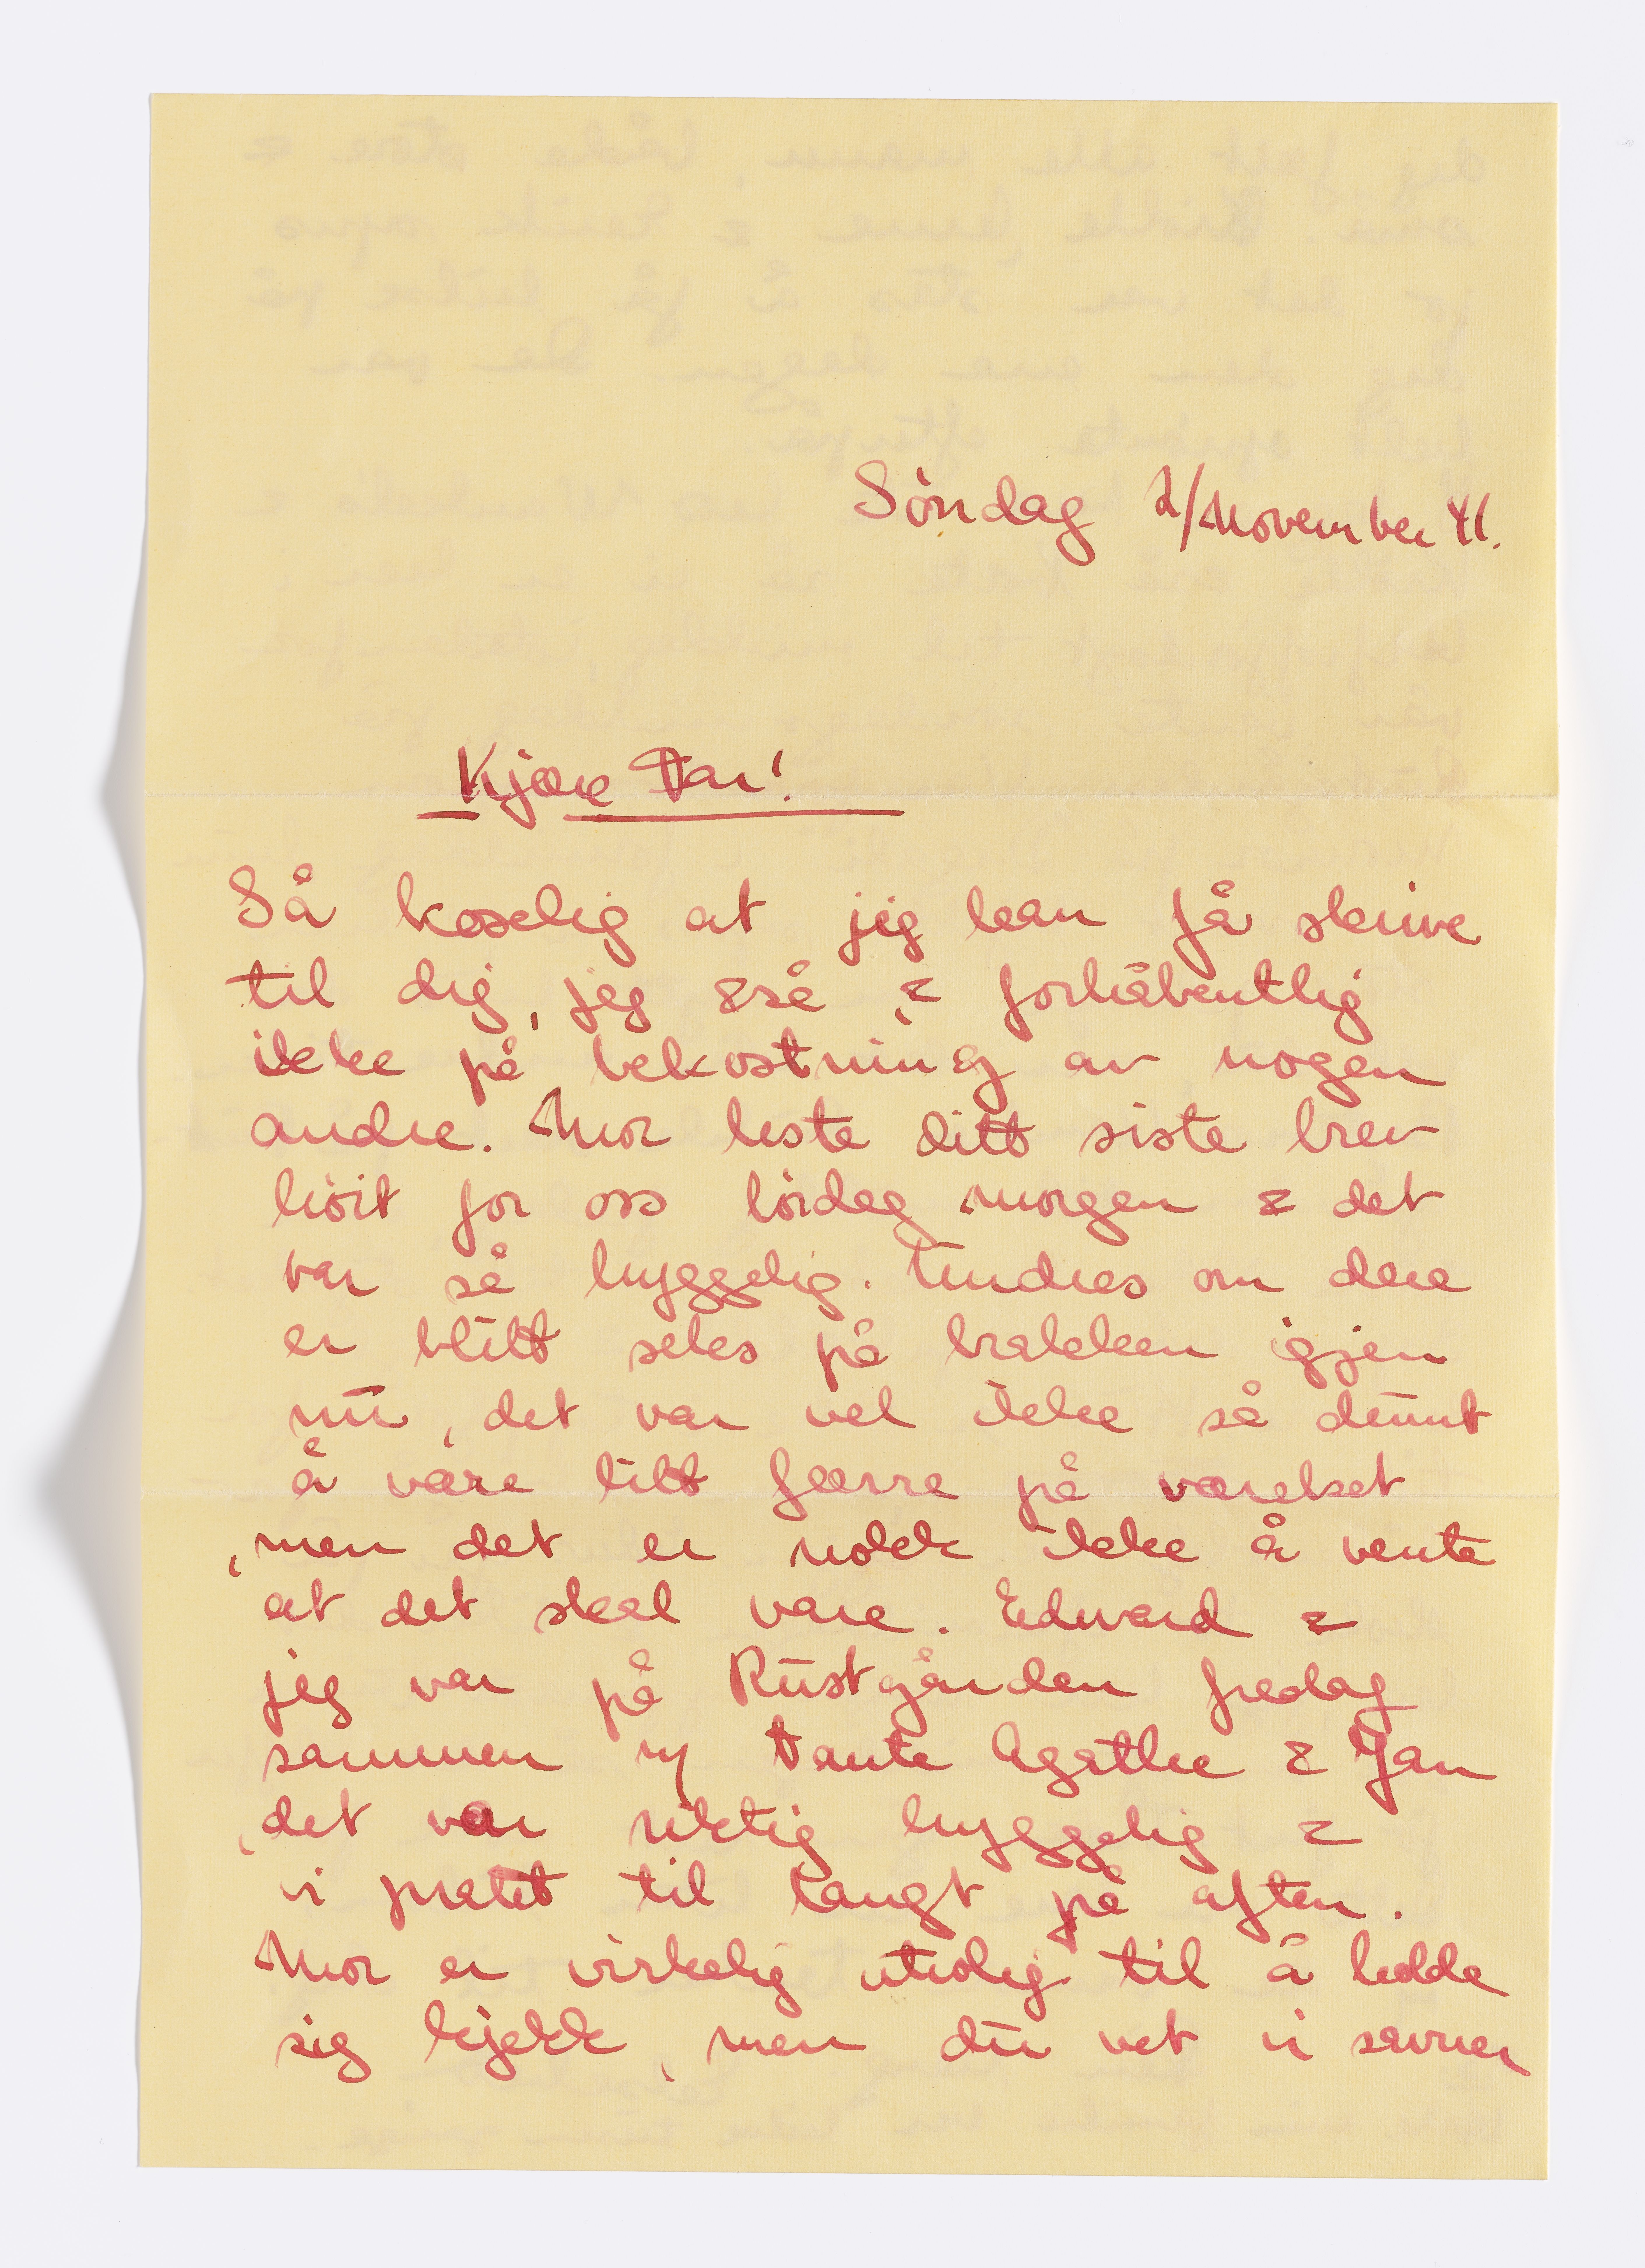 Søndag 2/November 41.
Kjære Far!
Så koselig at jeg kan få skrive
til dig, jeg &så, & forhåbentlig
ikke på bekostning av nogen
andre. Mor leste ditt siste brev
høit for oss lördag morgen & det
var så hyggelig. Undres om dere
er blitt seks på brakken igjen
nu, det var vel ikke så dumt
å være litt færre på værelset
, men det er nokk ikke å vente
at det skal vare. Edvard &
jeg var på Rustgården fredag
sammen m/ tante Agathe & Jan
, det var riktig hyggelig &
vi pratet til langt på aften.
Mor er virkelig utrolig til å holde
sig kjekk, men du vet vi savner